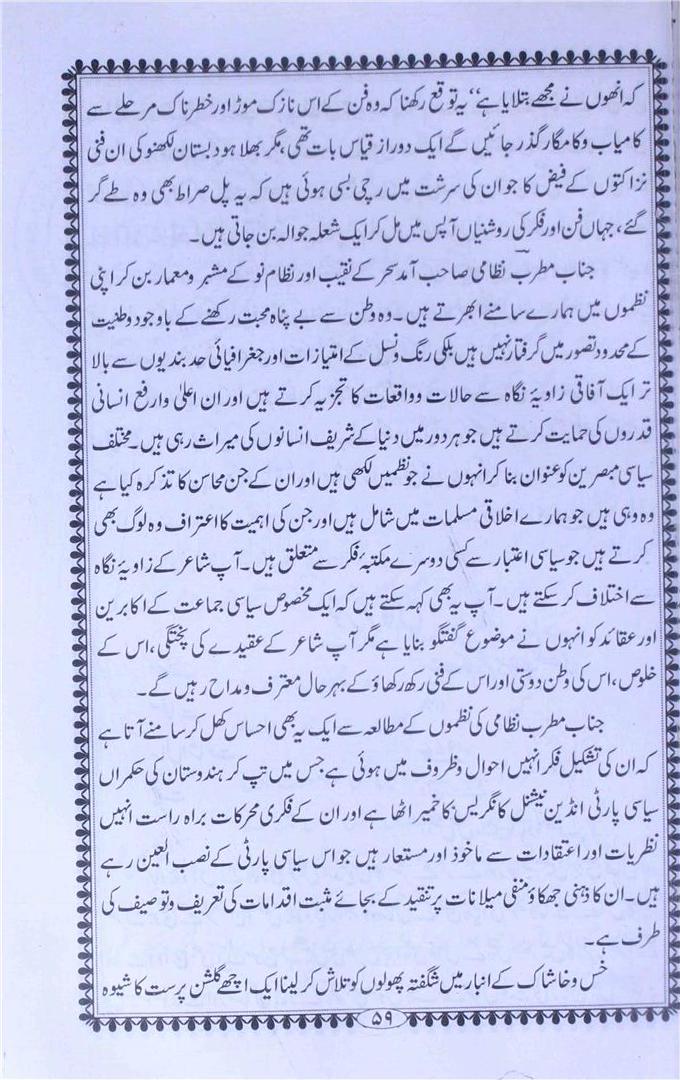 کہ انھوں نے مجھے بتلایا ہے‘‘ یہ توقع رکھنا کہ وہ فن کے اس نازک موڑ اور خطرناک مرحلے سے
کامیاب و کامگار گذر جائیں گے ایک دور از قیاس بات تھی، مگر بھلا ہو دبستان لکھنو کی ان فنی
نزاکتوں کے فیض کا جو ان کی سرشت میں رچی بسی ہوئی ہیں کہ یہ پل صراط بھی وہ طے گر
گئے، جہاں فن اور فکر کی روشنیاں آپس میں مل کر ایک شعلہ جوالہ بن جاتی ہیں۔
جناب مطرب نظامی صاحب آمد سحر کے نقیب اور نظام نو کے مشبر و معمار بن کر اپنی
نظموں میں ہمارے سامنے ابھرتے ہیں۔ وہ وطن سے بے پناہ محبت رکھنے کے باوجود وطنیت
کے محدود تصور میں گرفتار نہیں ہیں بلکی رنگ و نسل کے امتیازات اور جغرافیائی حد بندیوں سے بالا
تر ایک آفاقی زاویۂ نگاہ سے حالات و واقعات کا تجزیہ کرتے ہیں اور ان اعلیٰ وارفع انسانی
قدروں کی حمایت کرتے ہیں جو ہر دور میں دنیا کے شریف انسانوں کی میراث رہی ہیں۔ مختلف
سیاسی مبصرین کو عنوان بنا کر انہوں نے جو نظمیں لکھی ہیں اور ان کے جن محاسن کا تذکرہ کیا ہے
وہ وہی ہیں جو ہمارے اخلاقی مسلمات میں شامل ہیں اور جن کی اہمیت کا اعتراف وہ لوگ بھی
کرتے ہیں جو سیاسی اعتبار سے کسی دوسرے مکتبۂ فکر سے متعلق ہیں۔ آپ شاعر کے زاویۂ نگاہ
سے اختلاف کر سکتے ہیں۔ آپ یہ بھی کہہ سکتے ہیں کہ ایک مخصوص سیاسی جماعت کے اکابرین
اور عقائد کو انہوں نے موضوع گفتگو بنایا ہے مگر آپ شاعر کے عقیدے کی پختگی، اس کے
خلوص، اس کی وطن دوستی اور اس کے فنی رکھ رکھاؤ کے بہر حال معترف و مداح رہیں گے۔
جناب مطرب نظامی کی نظموں کے مطالعہ سے ایک یہ بھی احساس کھل کر سامنے آتا ہے
کہ ان کی تشکیل فکر انہیں احوال و ظروف میں ہوئی ہے جس میں تپ کر ہندوستان کی حکمراں
سیاسی پارٹی انڈین نیشنل کانگریس کا خمیر اٹھا ہے اور ان کے فکری محرکات براہ راست انہیں
نظریات اور اعتقادات سے ماخوذ اور مستعار ہیں جو اس سیاسی پارٹی کے نصب العین رہے
ہیں۔ ان کا ذہنی جھکاؤ منفی میلانات پر تنقید کے بجائے مثبت اقدامات کی تعریف و توصیف کی
طرف ہے۔
خس و خاشاک کے انبار میں شگفتہ پھولوں کو تلاش کر لینا ایک اچھے گلشن پرست کا شیوہ
۵۹